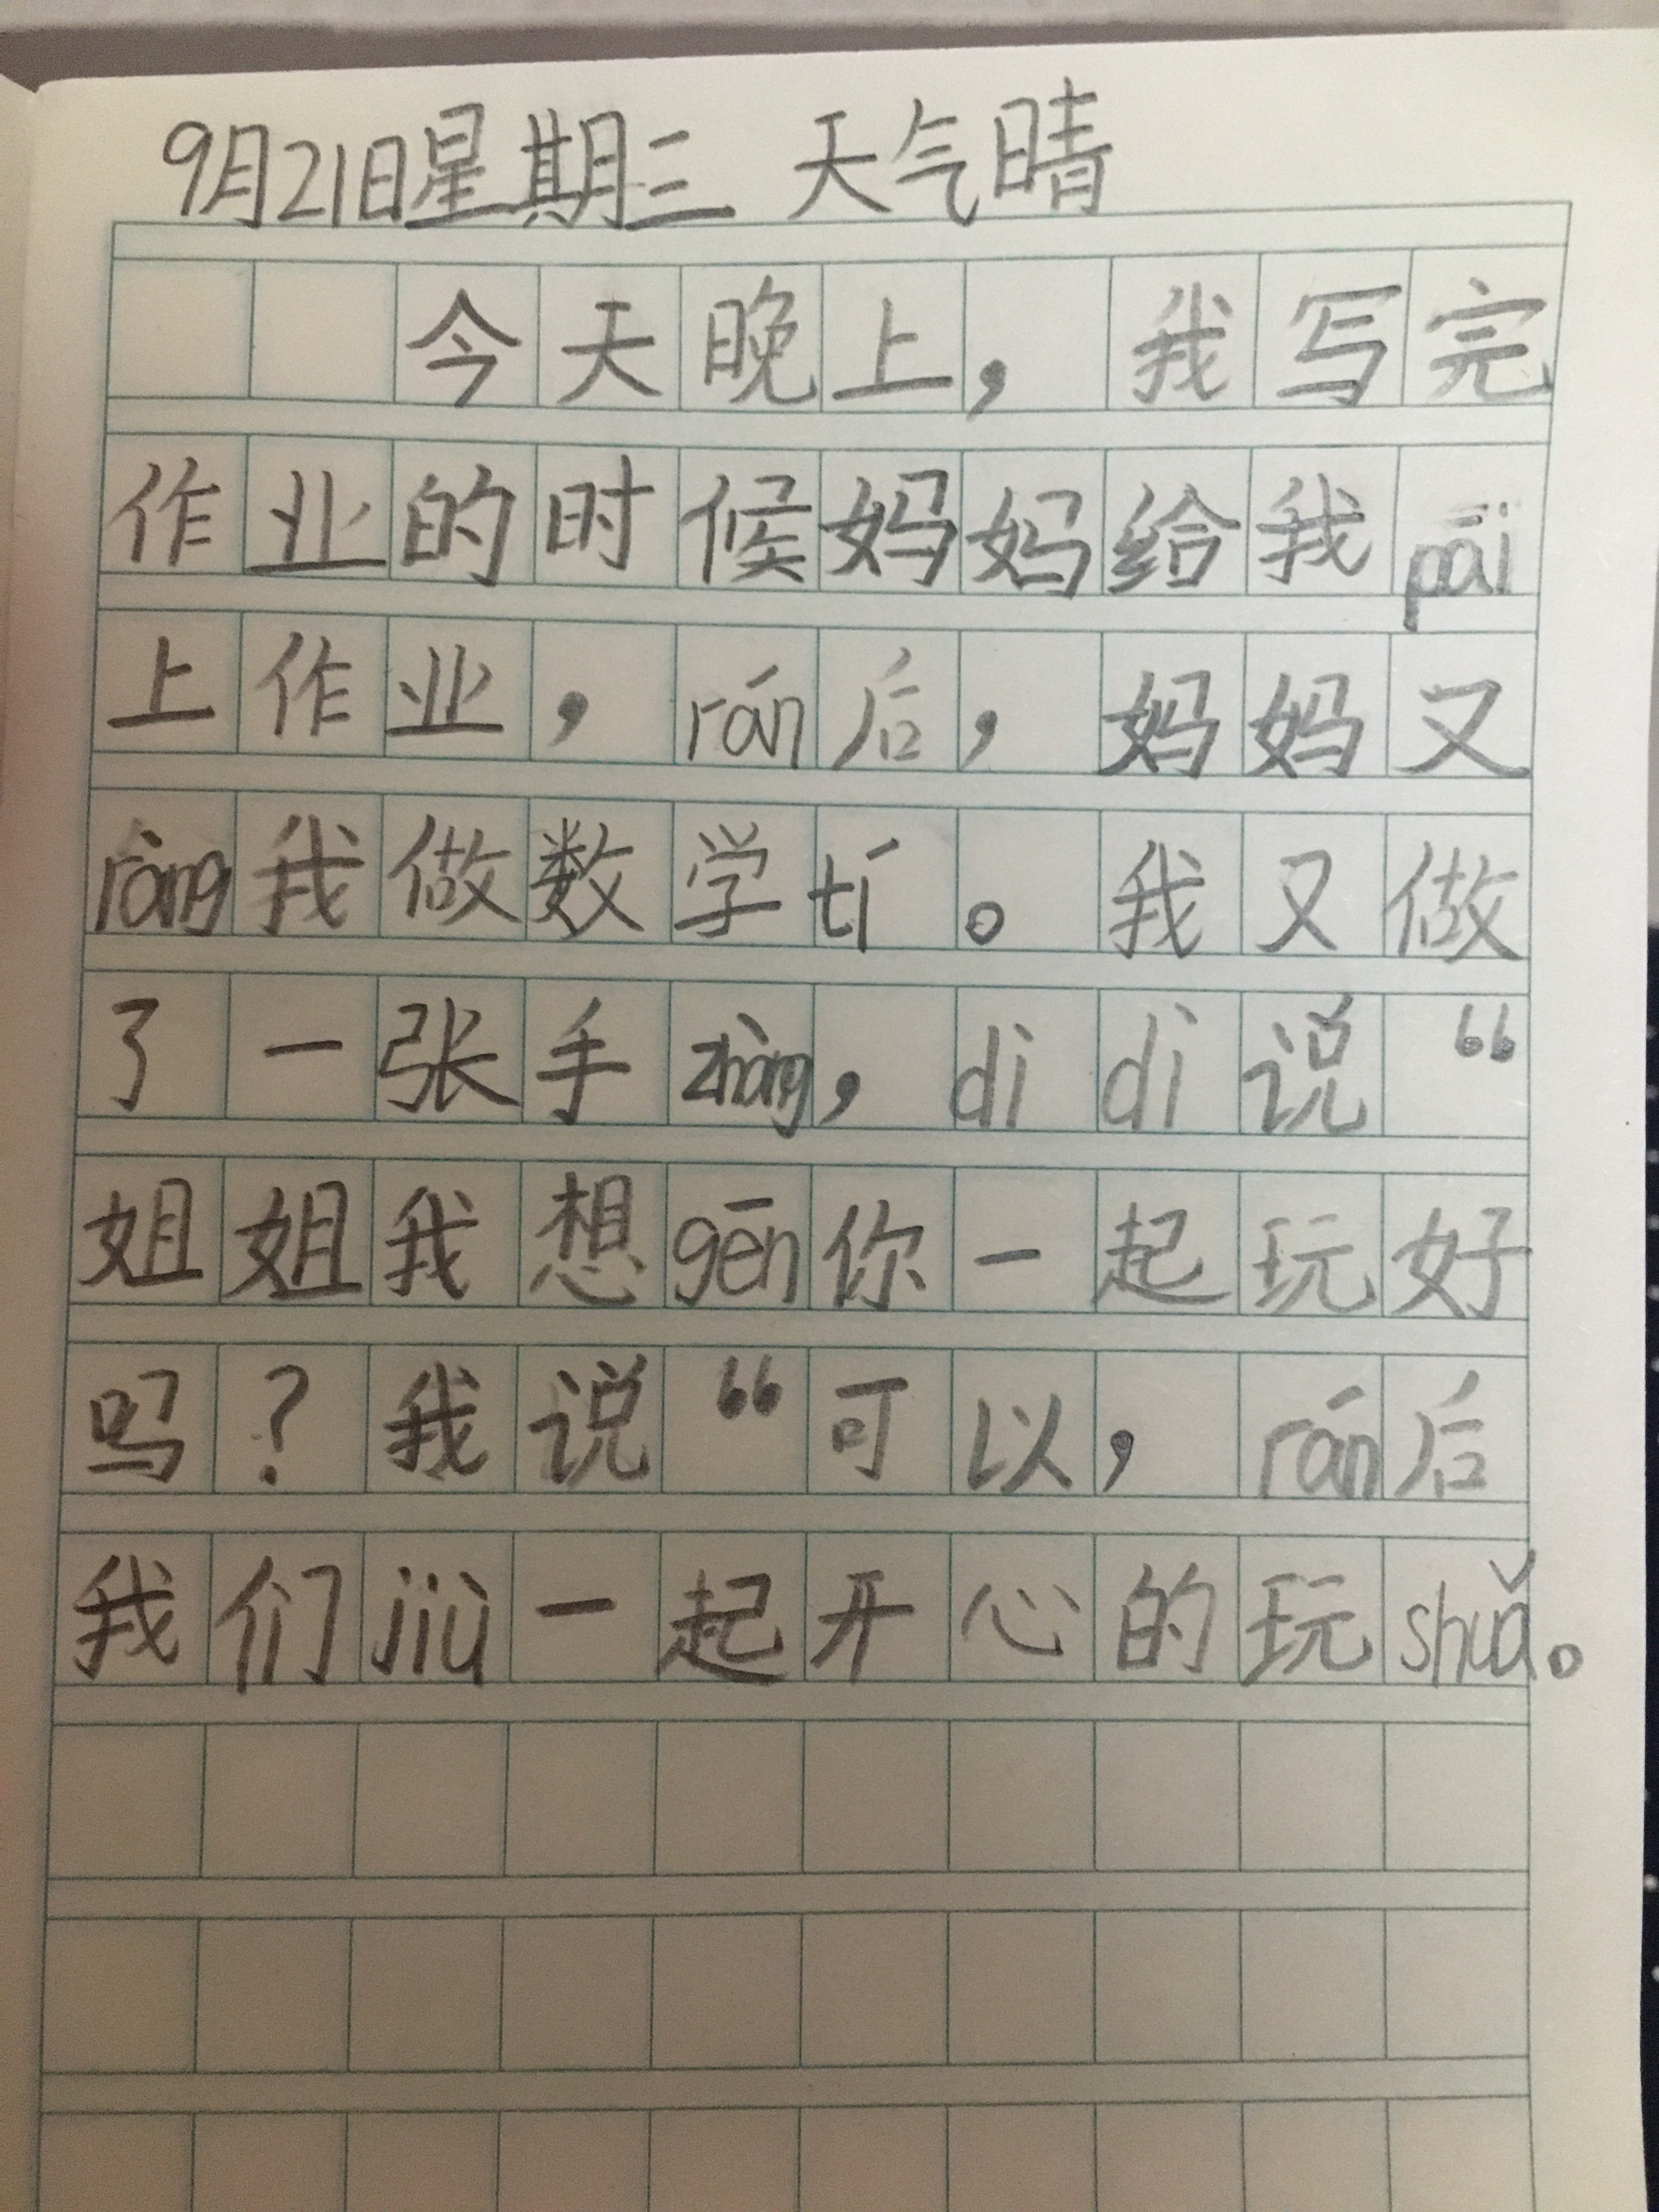 9月21日星期三 天气晴
今天晚上，我写完
作业的时候妈妈给我pāi
上作业，rán后，妈妈又
ràng我做数学tí。我又做
了一张手zhàng，dì dì说“
姐姐我想gēn你一起玩好
吗？我说“可以，rán后
我们jiù一起开心的玩shuǎ。